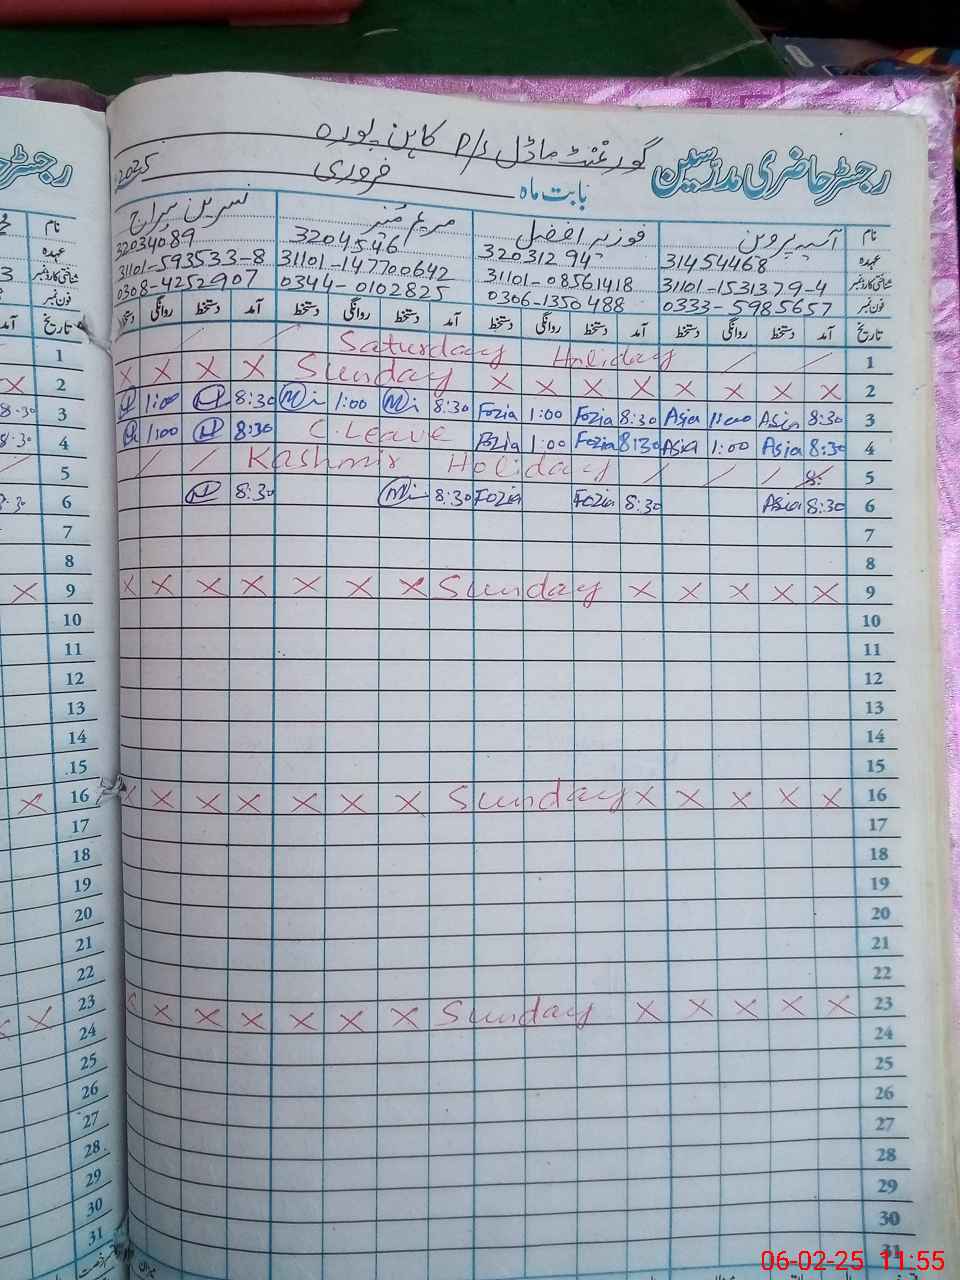 گورنمنٹ ماڈل P/S کاہن پورہ
رجسٹر حاضری مدرسین
بابت ماہ فروری 2025
نام آسیہ پروین فوزیہ افضل مریم منیر نسرین سراج
عہدہ 31454468 32031294 3204546 32034089
شناختی کارڈ نمبر 31101-1531379-4 31101-08561418 31101-147700642 31101-593533-8
فون نمبر 0333-5985657 0306-1350488 0344-0102825 0308-4252907
تاریخ آمد دستخط روانگی دستخط آمد دستخط روانگی دستخط آمد دستخط روانگی دستخط آمد دستخط روانگی دستخط
/ / Saturday Holiday / / 1
X X X X Sunday X X X X X X X X 2
1:00 8:30 1:00 8:30 Fozia 1:00 Fozia 8:30 Asia 1:00 Asia 8:30 3
1:00 8:30 C.Leave Fozia 1:00 Fozia 8:30 Asia 1:00 Asia 8:30 4
/ / Kashmir Holiday / / / 8: 5
8:30 8:30 Fozia Fozia 8:30 Asia 8:30 6
7
8
X X X X X X X Sunday X X X X X 9
10
11
12
13
14
15
X X X X X X X Sunday X X X X X 16
17
18
19
20
21
22
X X X X X X X Sunday X X X X X 23
24
25
26
27
28
29
30
31
نام
عہدہ
شناختی کارڈ نمبر
فون نمبر
تاریخ
1
2
3 8:30
4 8:30
5
6
7
8
9
10
11
12
13
14
15
16
17
18
19
20
21
22
23
24
25
26
27
28
29
30
31
06-02-25 11:55